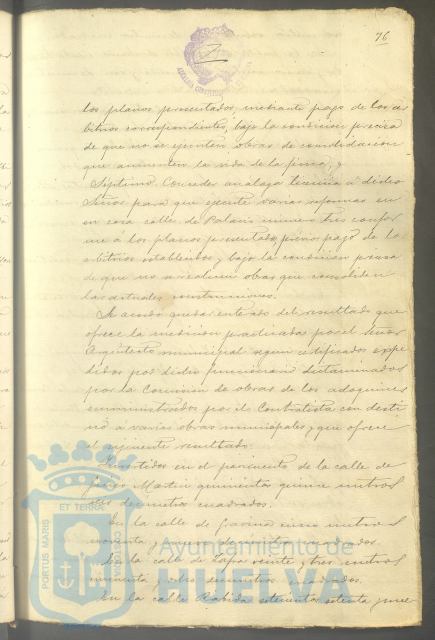 76
los planos presentados, mediante pago de los ar
bitrios correspondientes, bajo la condición precisa
de que no se ejecuten obras de consolidación
que aumenten la vida de la finca, y
Séptimo. Conceder análoga licencia á dicho
Señor para que ejecute varias reformas en
su casa calle de Palacio número tres confor
me á los planos presentados, previo pago de los
arbitrios establecidos y bajo la condición precisa
de que no se realicen obras que consoliden
las actuales construcciones.
Se acordó quedar enterado del resultado que
ofrece la medición practicada por el Señor
Arquitecto municipal según certificados expe
didos por dicho funcionario dictaminados
por la Comisión de obras de los adoquines
suministrados por el Contratista con desti
no á varias obras municipales y que ofrece
el siguiente resultado:
Invertidos en el pavimento de la calle de
Martin quinientos quince metros
decimetros cuadrados.
En la calle de metros
noventa y nueve decimetros cuadrados
En la calle de veinte y tres metros
y ocho decimetros cuadrados.
En la calle Rabida setecientos setenta y nue
PORTUS MARIS
ET TERRAE
CUSTODIA
Ayuntamiento de
HUELVA